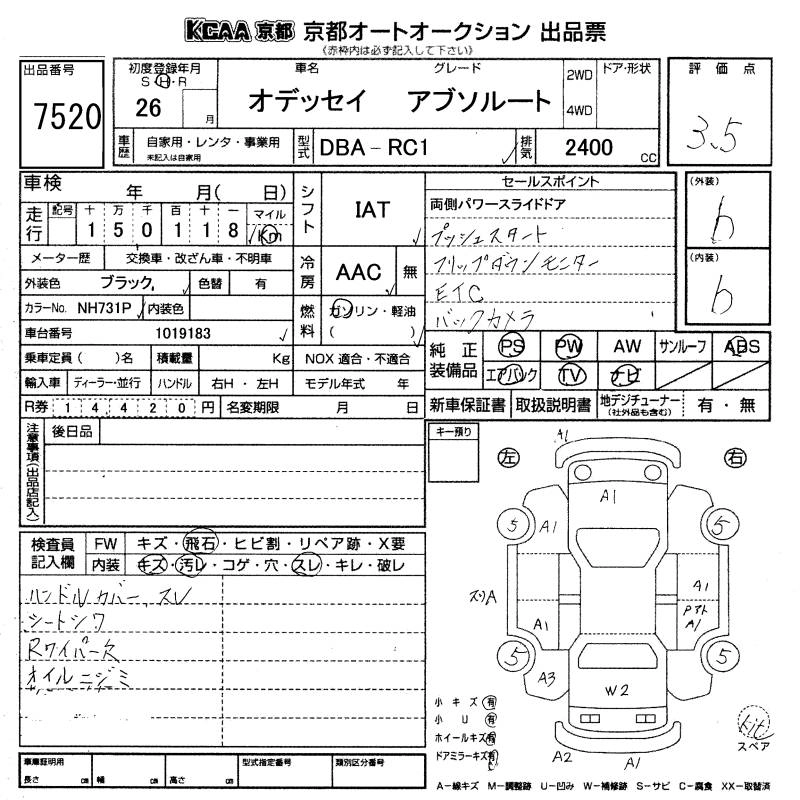 KCAA 京都 京都オートオークション 出品票
《赤枠内は必ず記入して下さい》
出品番号
7520
初度登録年月
S・H・R
26 月
車名 グレード
オデッセイ アブソルート
2WD
4WD
ドア・形状
評価点
3.5
車歴
自家用・レンタ・事業用
未記入は自家用
型式
DBA-RC1
排気
2400 CC
車検 年 月( 日)
走行
記号 十 万 千 百 十 一 マイル
1 5 0 1 1 8 Km
メーター歴 交換車・改ざん車・不明車
外装色 ブラック 色替 有
カラーNo. NH731P 内装色
車台番号 1019183
乗車定員( )名 積載量 Kg NOX 適合・不適合
輸入車 ディーラー・並行 ハンドル 右H・左H モデル年式 年
R券 1 4 4 2 0 円 名変期限 月 日
シフト
IAT
冷房
AAC 無
燃料
ガソリン・軽油
( )
セールスポイント
両側パワースライドドア
プッシュスタート
フリップダウンモニター
ETC
バックカメラ
(外装)
b
(内装)
b
純正装備品
PS PW AW サンルーフ ABS
エアバック TV ナビ
新車保証書 取扱説明書 地デジチューナー (社外品も含む) 有・無
注意事項(出品店記入)
後日品
キー預り
検査員記入欄
FW キズ・飛石・ヒビ割・リペア跡・X要
内装 キズ・汚レ・コゲ・穴・スレ・キレ・破レ
ハンドルカバー、スレ
シートシワ
Rワイパー欠
オイルニジミ
左 右
A1
A1
5 5
A1
スリA
A1
A1
Pアト
A1
5 5
A3
W2
A2 A1
小キズ 有
小U 有
ホイールキズ 有
ドアミラーキズ 有
kit
スペア
車庫証明用
長さ cm 幅 cm 高さ cm
型式指定番号
類別区分番号
A-線キズ M-調整跡 U-凹み W-補修跡 S-サビ C-腐食 XX-取替済